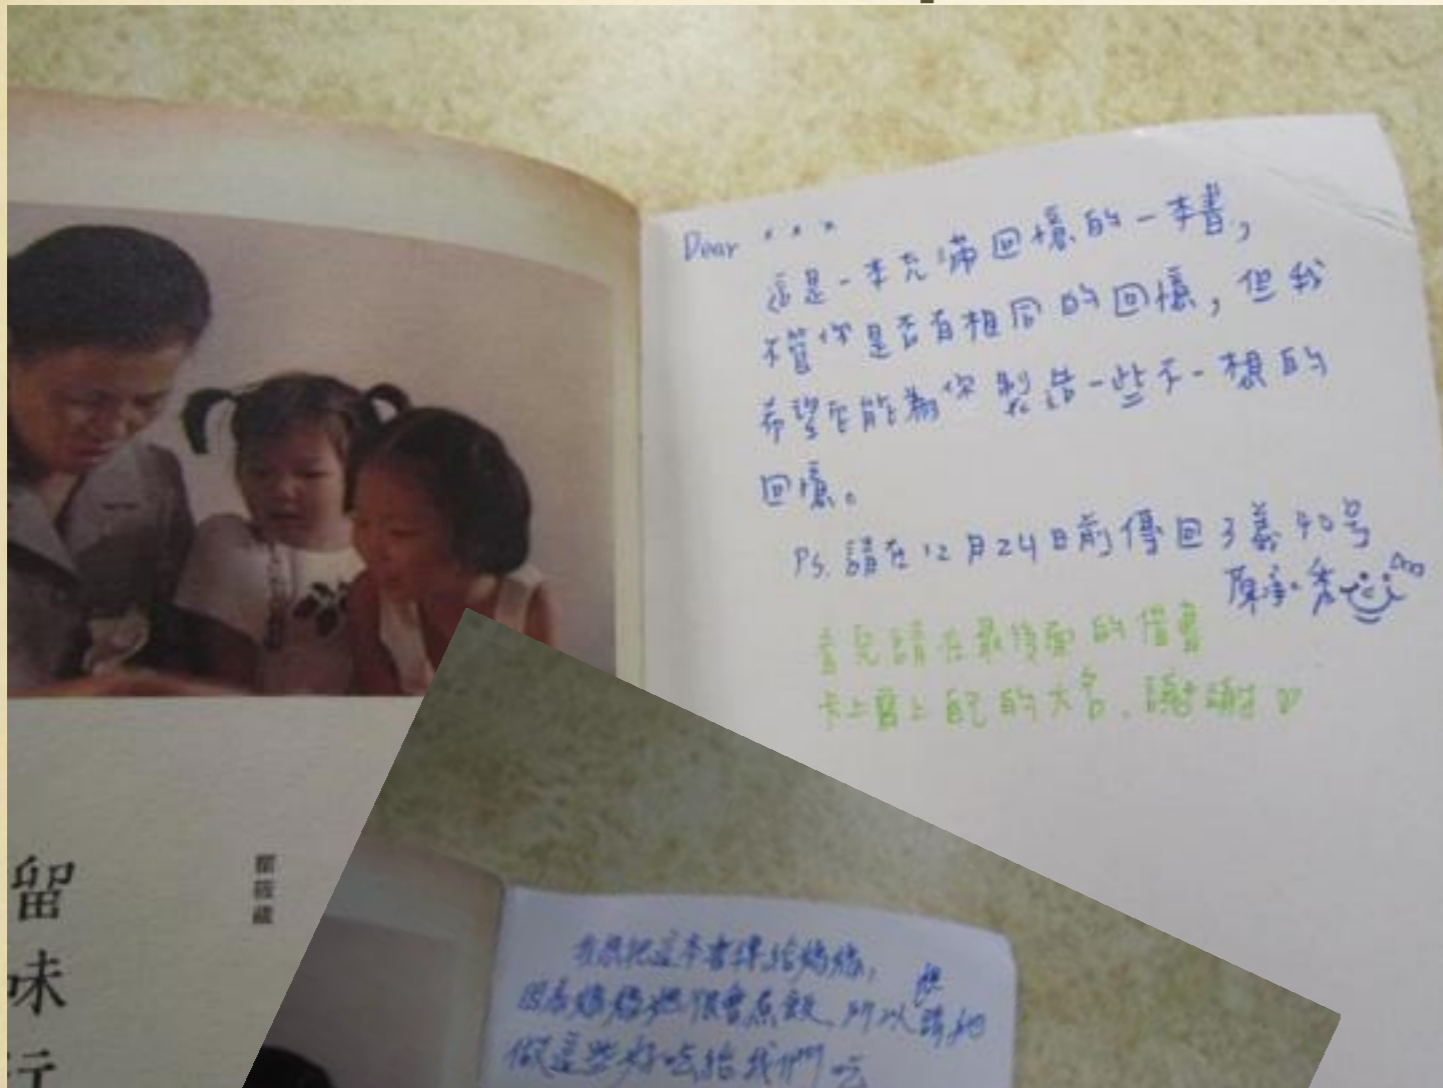 Dear ...
這是一本充滿回憶的一本書,
不管你是否有相同的回憶, 但我
希望能為你製造一些不一樣的
回憶。
Ps. 請在12月24日前傳回3義40号
請在最後面的借書
卡上簽上自己的大名. 謝謝
留
味
行
瞿筱葳
我想把這本書譯給媽媽,
因為媽媽她很會煮飯 所以想請她
做這些好吃給我們吃